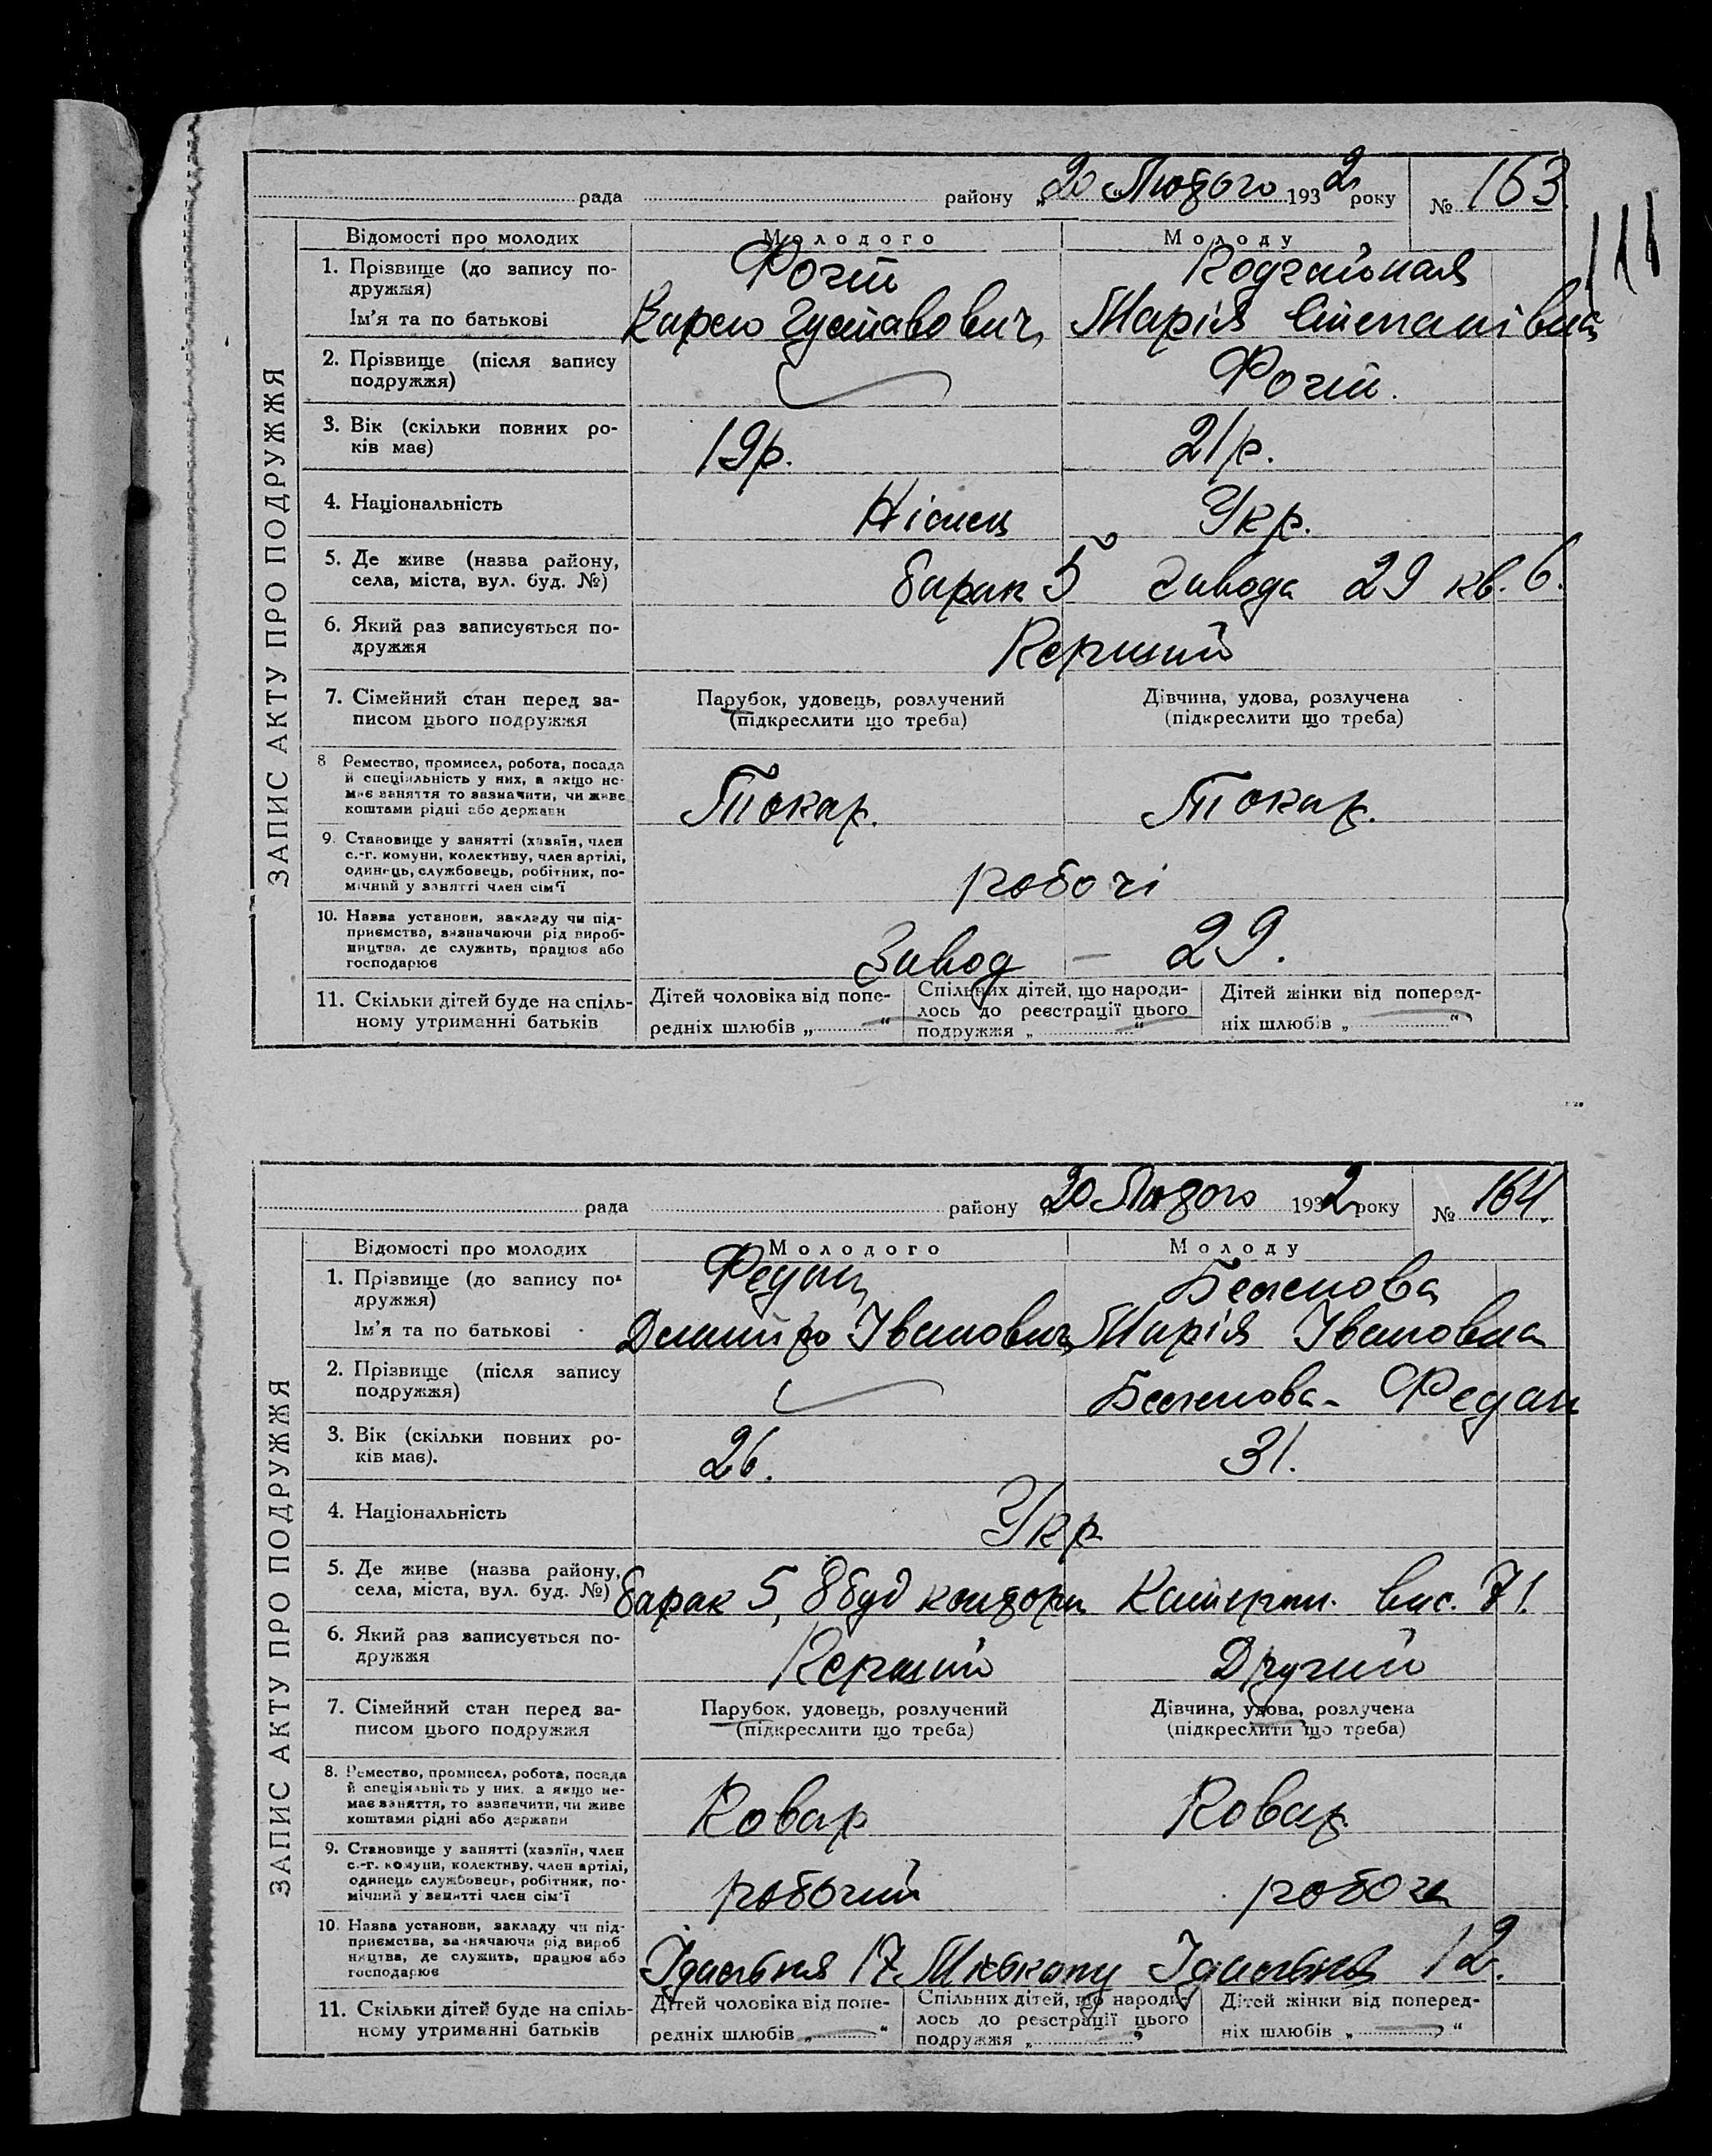 рада району „20 Лютого 1932 року № 163.
111
ЗАПИС АКТУ ПРО ПОДРУЖЖЯ
Відомості про молодих Молодого Молоду
1. Прізвище (до запису по-
дружжя) Фогт
Ім'я та по батькові Карло Густавович Марія Степанівна
2. Прізвище (після запису
подружжя) Фогт.
3. Вік (скільки повних ро-
ків має) 19р. 21р.
4. Національність Німец Укр.
5. Де живе (назва району,
села, міста, вул. буд. №) барак 5 Завода 29 кв. 6.
6. Який раз записується по-
дружжя Перший
7. Сімейний стан перед за-
писом цього подружжя
Парубок, удовець, розлучений
(підкреслити що треба)
Дівчина, удова, розлучена
(підкреслити що треба)
8 Ремество, промисел, робота, посада
й спеціяльність у них, а якщо не-
має заняття то зазначити, чи живе
коштами рідні або держави Токар. Токар.
9. Становище у занятті (хазяїн, член
с.-г. комуни, колективу, член артілі,
одинець, службовець, робітник, по-
мічний у занятті член сім'ї робочі
10. Назва установи, закладу чи під-
приємства, зазначаючи рід вироб-
ництва, де служить, працює або
господарює Завод – 29.
11. Скільки дітей буде на спіль-
ному утриманні батьків
Дітей чоловіка від попе-
редніх шлюбів „ “
Спільних дітей, що народи-
лось до реєстрації цього
подружжя „ “
Дітей жінки від поперед-
ніх шлюбів „ “
рада району „20 Лютого 1932 року № 164.
ЗАПИС АКТУ ПРО ПОДРУЖЖЯ
Відомості про молодих Молодого Молоду
1. Прізвище (до запису по-
дружжя) Федан
Ім'я та по батькові Дмитро Іванович Марія Івановна
2. Прізвище (після запису
подружжя) Федан
3. Вік (скільки повних ро-
ків має). 26. 31.
4. Національність Укр
5. Де живе (назва району,
села, міста, вул. буд. №) барак 5, 8 буд вис. 71.
6. Який раз записується по-
дружжя Перший Другий
7. Сімейний стан перед за-
писом цього подружжя
Парубок, удовець, розлучений
(підкреслити що треба)
Дівчина, удова, розлучена
(підкреслити що треба)
8. Ремество, промисел, робота, посада
й спеціяльність у них, а якщо не-
має заняття, то зазначити, чи живе
коштами рідні або держави Ковар Ковар
9. Становище у занятті (хазяїн, член
с.-г. комуни, колективу, член артілі,
одинець службовець, робітник, по-
мічний у занятті член сім'ї робочий робоча
10. Назва установи, закладу чи під-
приємства, зазначаючи рід вироб
ництва, де служить, працює або
господарює Їдальня 17 Міськопу Їдальня 12.
11. Скільки дітей буде на спіль-
ному утриманні батьків
Дітей чоловіка від попе-
редніх шлюбів „ “
Спільних дітей, що народи-
лось до реєстрації цього
подружжя „ “
Дітей жінки від поперед-
ніх шлюбів „ “